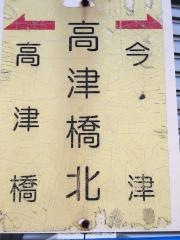 高津橋北
高津橋
今津